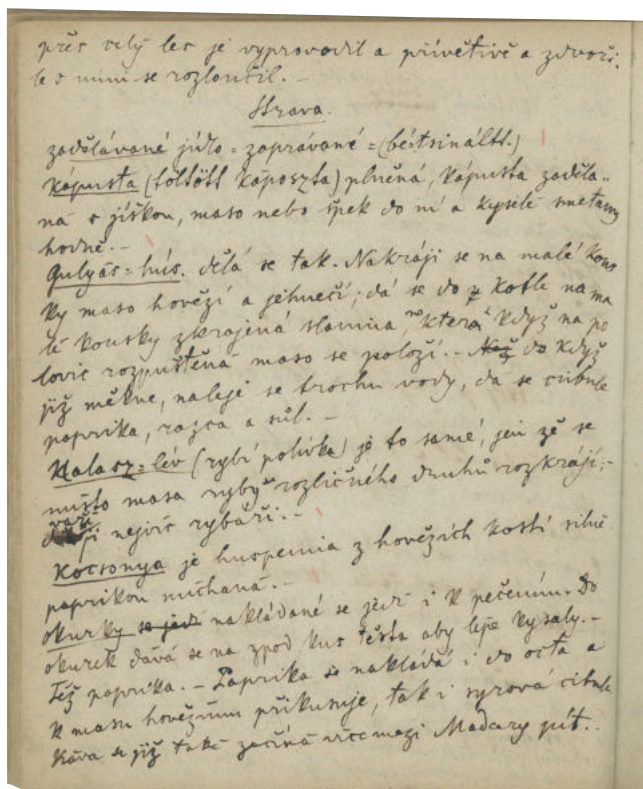 přes celý les je vyprovodil a přívětivě a zdvoři-
le s nimi se rozloučil. -
Strava.
zadělávané jídlo = zaprávané = (bécsinált.)
Kápusta (töltött káposzta) plněná, kápusta zaděla-
ná s jíškou, maso nebo špek do ní a kyselé smetany
hodně. -
Gulyás = hús. dělá se tak. Nakrájí se na malé kous
ky maso hovězí a jehnečí; dá se do kotle na ma
lé kousky zkrajená slanina, na která když na po
lovic rozpuštěná maso se položí. - do když
již měkne, naleje se trochu vody, dá se cibule
paprika, razca a sůl. -
Halasz = lév (rybí polívka) je to samé, jen že se
místo masa ryby rozličného druhů rozkrájí; -
vaří ji nejvíc rybáři. -
Kocsonya je huspenina z hovězích kostí silně
paprikou míchaná. -
okurky se jedí nakládané se jedí i k pečením. Do
okurek dává se na zpod kus těsta aby lépe kysaly. -
Též paprika. - Paprika se nakládá i do octa a
k masu hovězímu přikusuje, tak i syrová cibule
Káva se již také začíná více mezi Maďary pít. -